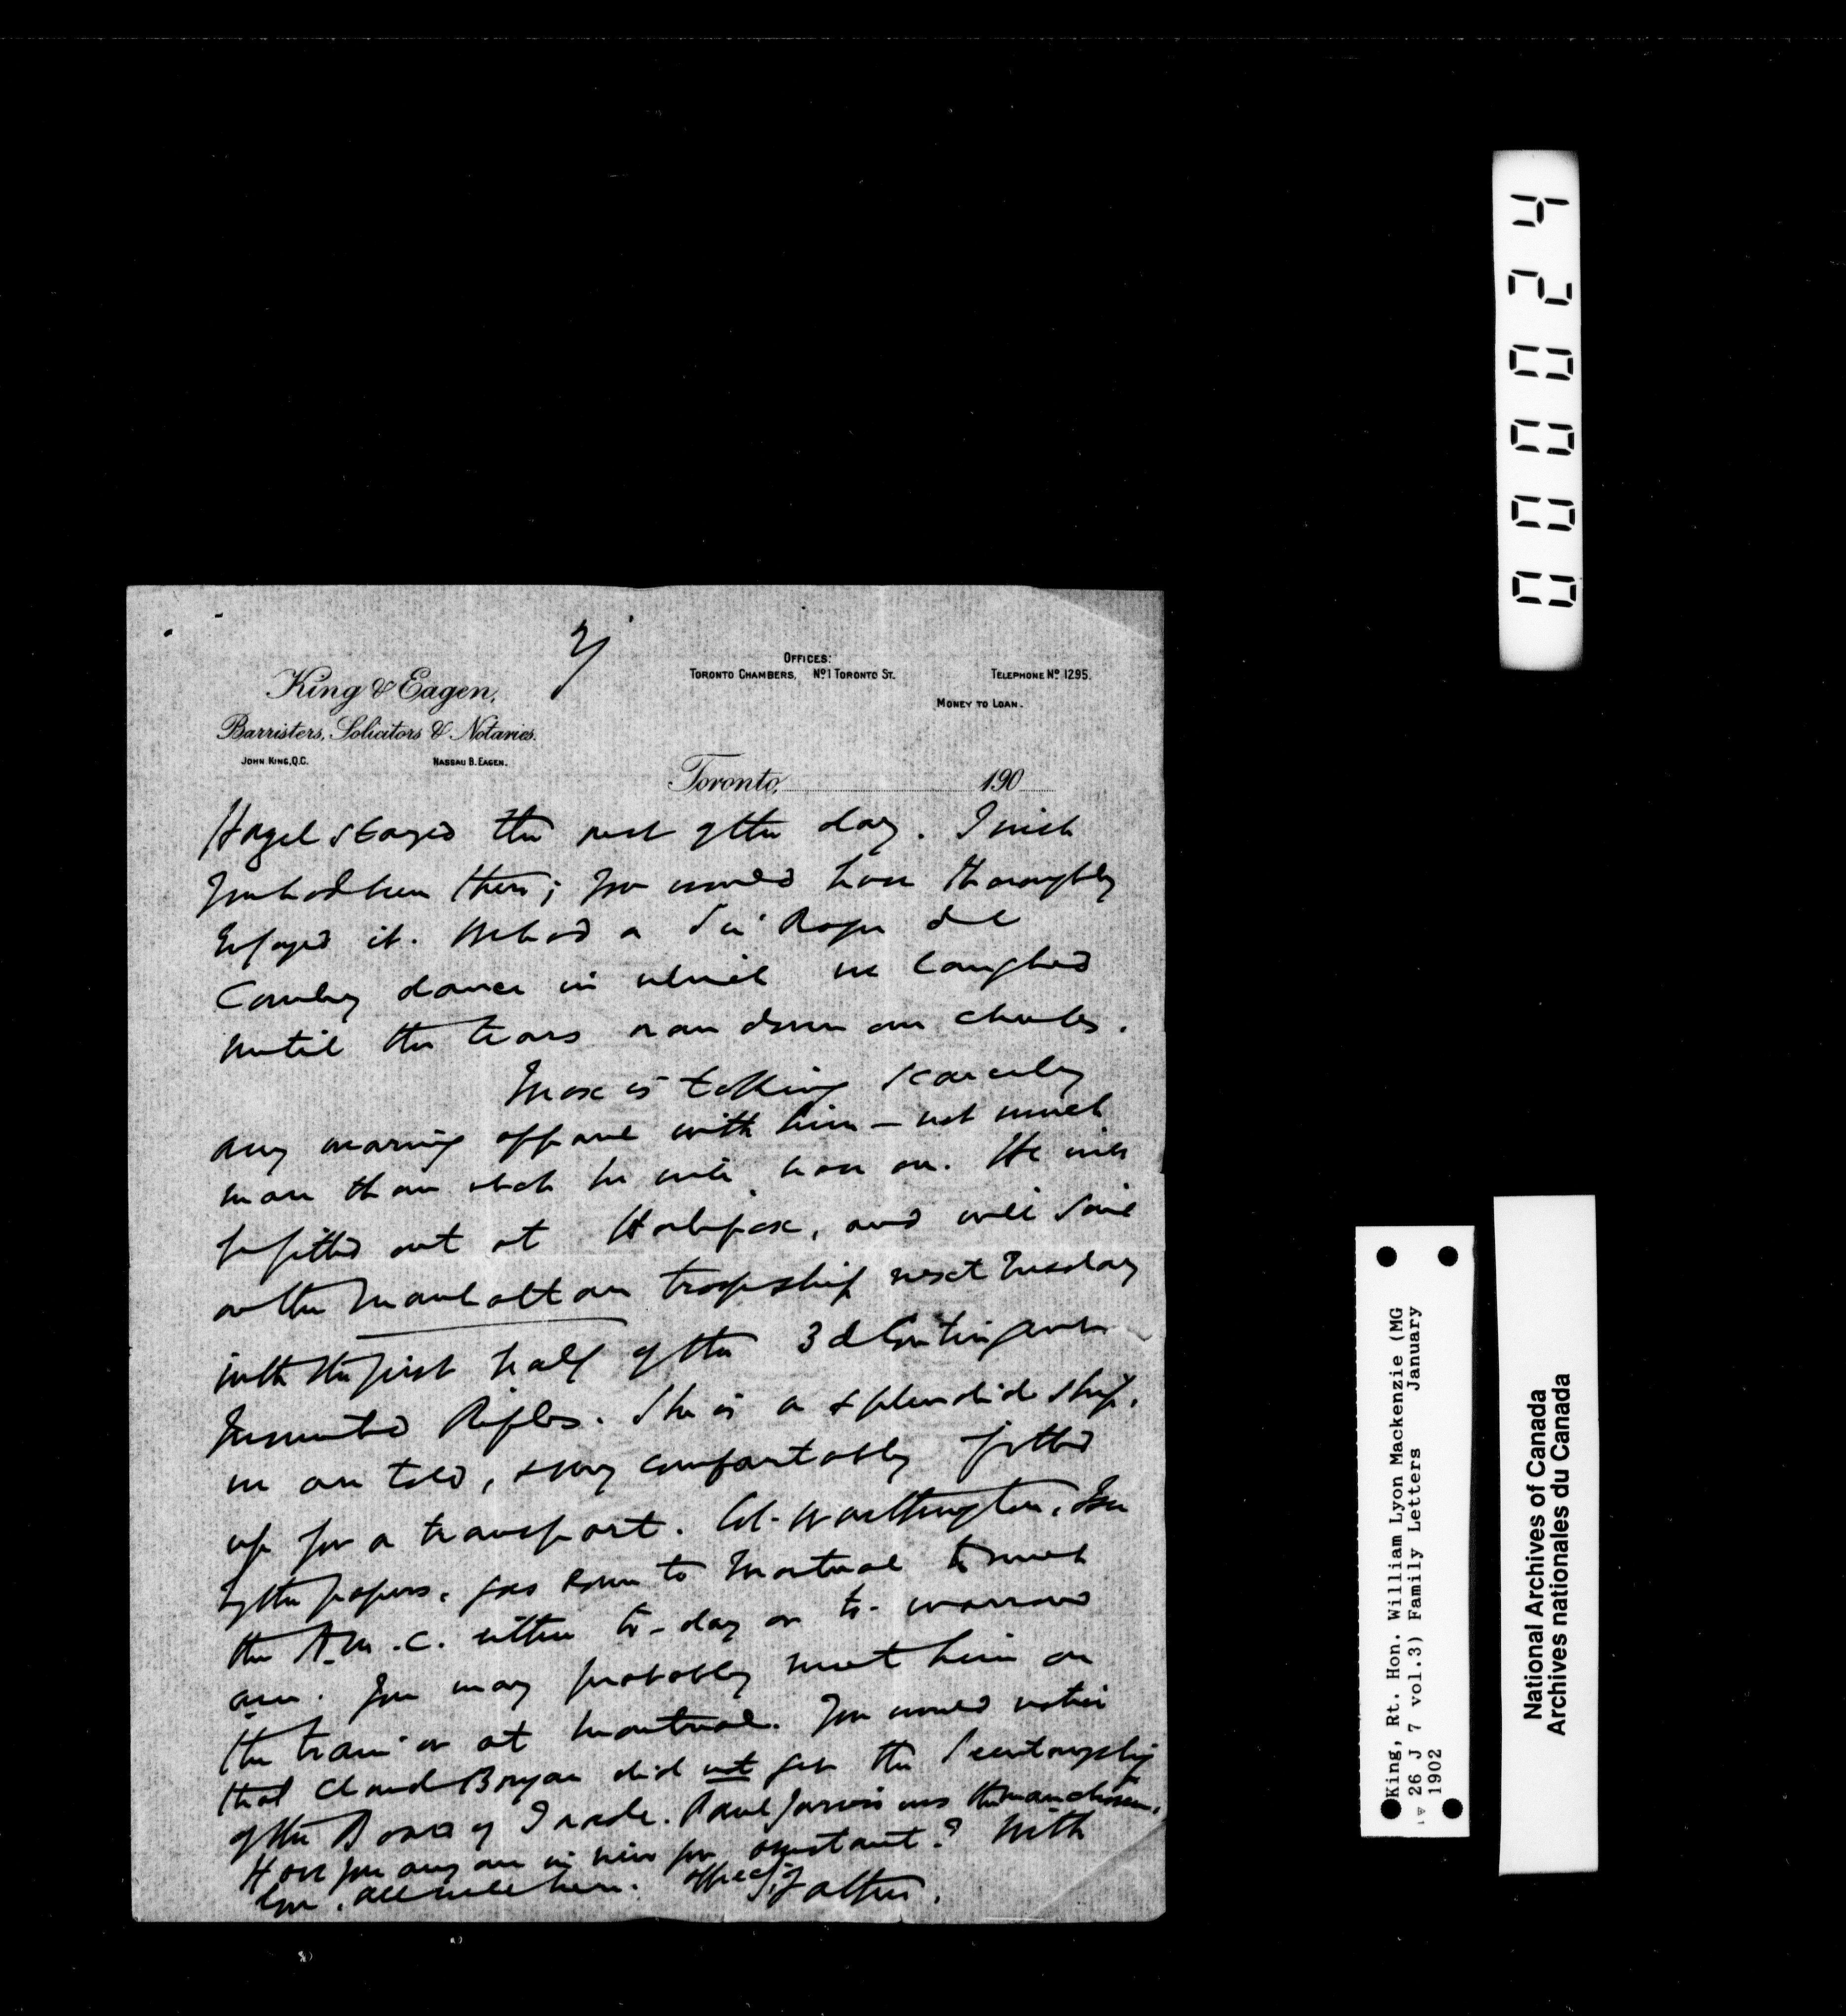 2/
King & Eagen,
Barristers, Solicitors & Notaries.
John King, Q.C. Nassau B. Eagen.
Offices:
Toronto Chambers, No 1 Toronto St.
Telephone No 1295.
Money to Loan.
Toronto, 190
Hazel stayed the rest of the day. I wish
you had been there; you would have thoroughly
enjoyed it. We had a Sir Roger de
Coverley dance in which we laughed
until the tears ran down our cheeks.
Max is taking scarcely
any wearing apparel with him – not much
more than what he will have on. He will
be fitted out at Halifax, and will sail
on the Manhattan troopship next Tuesday
with the first half of the 3d Contingent
Mounted Rifles. She is a splendid ship,
we are told, & very comfortably fitted
up for a transport. Col. Worthington, I see
by the papers, goes down to Montreal to meet
the A.M.C. either to-day or to-morrow
a.m. You may probably meet him on
the train or at Montreal. You would notice
that Claude Bryan did not get the Secretaryship
of the Board of Trade. Paul Jarvis was the man chosen.
Have you any one in view for assistant? With
love, all well here. Affecly, Father.
000024
King, Rt. Hon. William Lyon Mackenzie (MG
26 J 7 vol.3) Family Letters January
1902
National Archives of Canada
Archives nationales du Canada